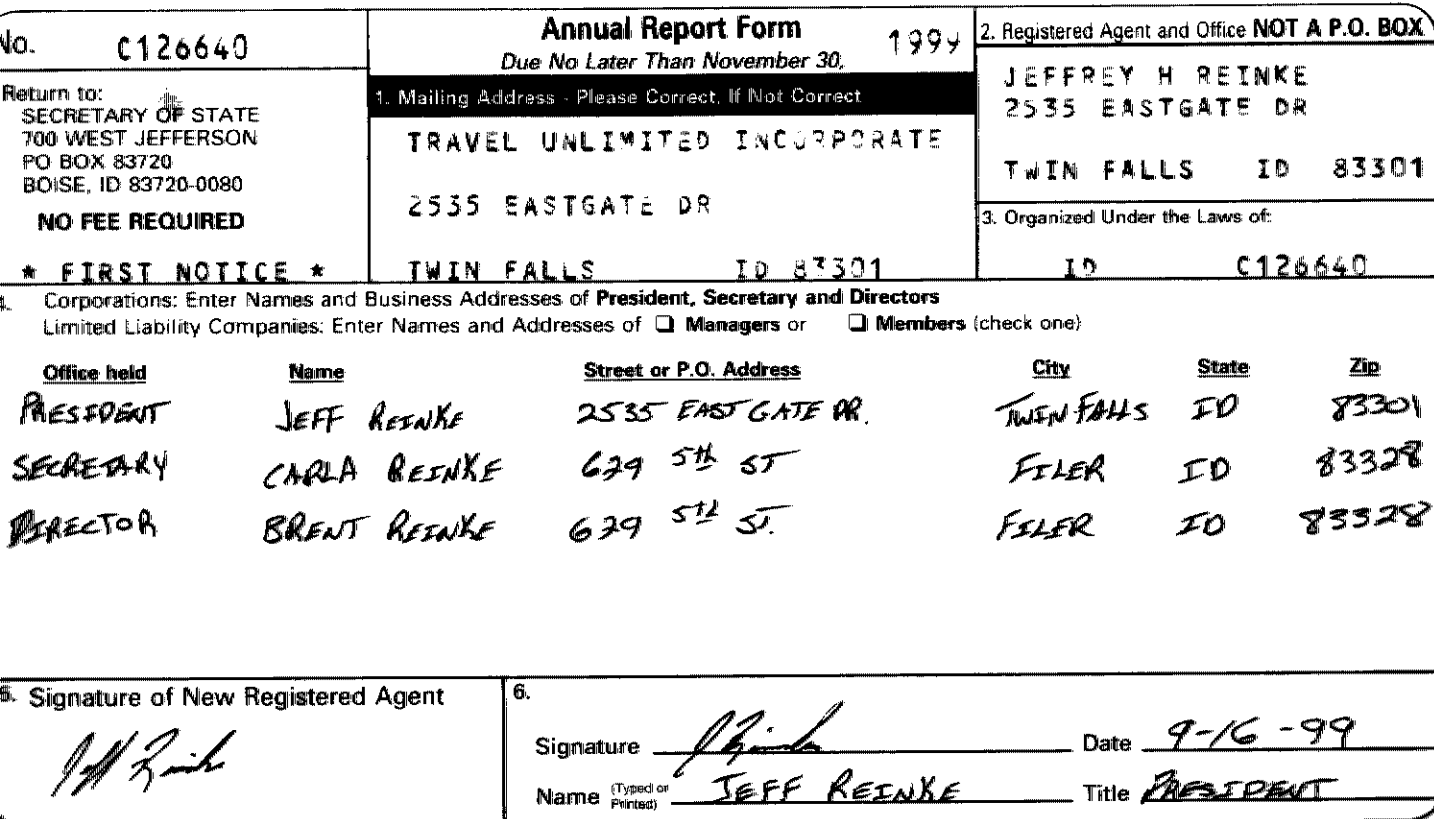 No. C126640
Return to:
SECRETARY OF STATE
700 WEST JEFFERSON
PO BOX 83720
BOISE, ID 83720-0080
NO FEE REQUIRED
* FIRST NOTICE *
Annual Report Form 1999
Due No Later Than November 30,
1. Mailing Address - Please Correct, If Not Correct
TRAVEL UNLIMITED INCORPORATE
2535 EASTGATE DR
TWIN FALLS ID 83301
2. Registered Agent and Office NOT A P.O. BOX
JEFFREY H REINKE
2535 EASTGATE DR
TWIN FALLS ID 83301
3. Organized Under the Laws of:
ID C126640
4. Corporations: Enter Names and Business Addresses of President, Secretary and Directors
Limited Liability Companies: Enter Names and Addresses of ❑ Managers or ❑ Members (check one)
Office held Name Street or P.O. Address City State Zip
PRESIDENT JEFF REINKE 2535 EAST GATE DR. TWIN FALLS ID 83301
SECRETARY CARLA REINKE 629 5th ST FILER ID 83328
DIRECTOR BRENT REINKE 629 5th ST. FILER ID 83328
5. Signature of New Registered Agent
Jeff Reinke
6.
Signature J Reinke Date 9-16-99
Name (Typed or Printed) JEFF REINKE Title PRESIDENT